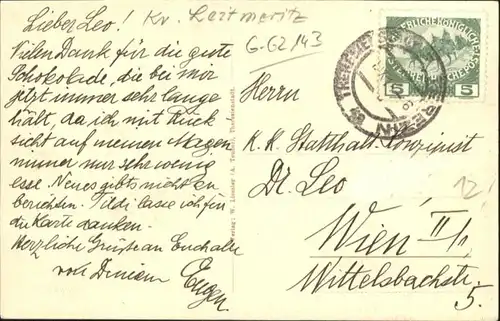 Lieber Leo!
Kr. Leitmeritz
6-G2/43
Vielen Dank für die gute
Schokolade, die bei mir
jetzt immer sehr lange
hält, da ich mit Rück
sicht auf meinen Magen
immer nur sehr wenig
esse. Neues gibts nicht zu
berichten. Tildi lasse ich für
die Karte danken.
Herzliche Grüße an Euch alle
von Deinem Eugen
Verlag: W. Theresienstadt.
THERESIENSTADT
5 5
Herrn
K. K. Statthalt. Konzipist
Dr. Leo
Wien II/1
Wittelsbachstr.
5.
12.